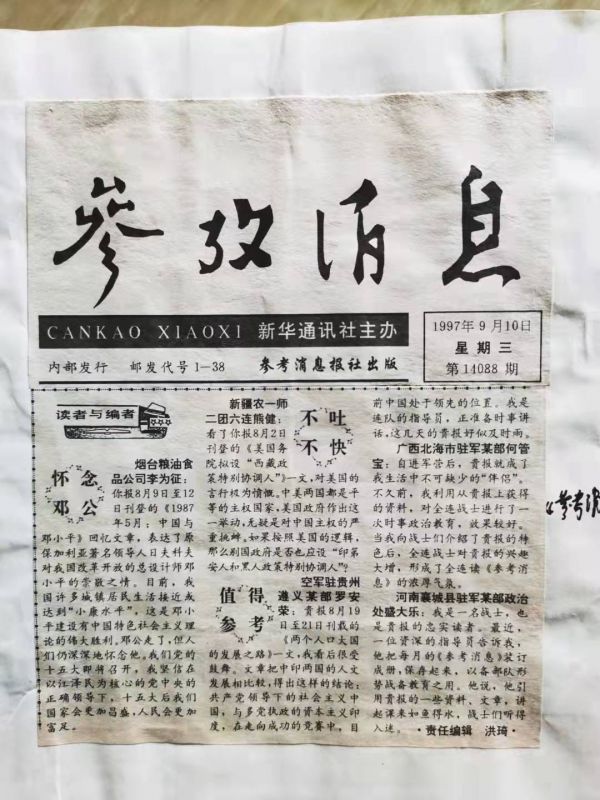 參攷消息
CANKAO XIAOXI 新华通讯社主办
内部发行 邮发代号1-38 参考消息报社出版
1997年9月10日
星期三
第14088期
读者与编者
怀念
邓公
烟台粮油食
品公司李为征：
你报8月9日至12
日刊登的《1987
年5月：中国与
邓小平》回忆文章，表达了原
保加利亚著名领导人日夫科夫
对我国改革开放的总设计师邓
小平的崇敬之情。目前，我
国许多城镇居民生活接近或
达到“小康水平”，这是邓小
平建设有中国特色社会主义理
论的伟大胜利。邓公走了，但人
们仍深深地怀念他。我们党的
十五大即将召开，我坚信在
以江泽民为核心的党中央的
正确领导下，十五大后我们
国家会更加昌盛，人民会更加
富足。
不吐
不快
新疆农一师
二团六连熊健：
看了你报8月2日
刊登的《美国务
院拟设“西藏政
策特别协调人”》一文，对美国的
言行极为愤慨。中美两国都是平
等的主权国家，美国政府作出这
一举动，无疑是对中国主权的严
重挑衅。如果按照美国的逻辑，
那么别国政府是否也应设“印第
安人和黑人政策特别协调人”？
值得
参考
空军驻贵州
遵义某部罗安
荣：贵报8月19
日至21日刊载的
《两个人口大国
的发展之路》一文，我看后很受
鼓舞。文章把中印两国的人文
发展相比较，得出这样的结论：
共产党领导下的社会主义中
国，与多党执政的资本主义印
度，在走向成功的竞赛中，目
前中国处于领先的位置。我是
连队的指导员，正准备时事讲
话，这几天的贵报好似及时雨。
广西北海市驻军某部何管
宝：自进军营后，贵报就成了
我生活中不可缺少的“伴侣”。
不久前，我利用从贵报上获得
的资料，对全连战士进行了一
次时事政治教育，效果较好。
当我向战士们介绍了贵报的特
色后，全连战士对贵报的兴趣
大增，形成了全连读《参考消
息》的浓厚气氛。
河南襄城县驻军某部政治
处盛大乐：我是一名战士，也
是贵报的忠实读者。最近，
一位资深的指导员告诉我，
他把每月的《参考消息》装订
成册，保存起来，以备部队形
势战备教育之用。他说，他引
用贵报的一些资料、文章，讲
起课来如鱼得水，战士们听得
入迷。·责任编辑 洪琦·
参考消